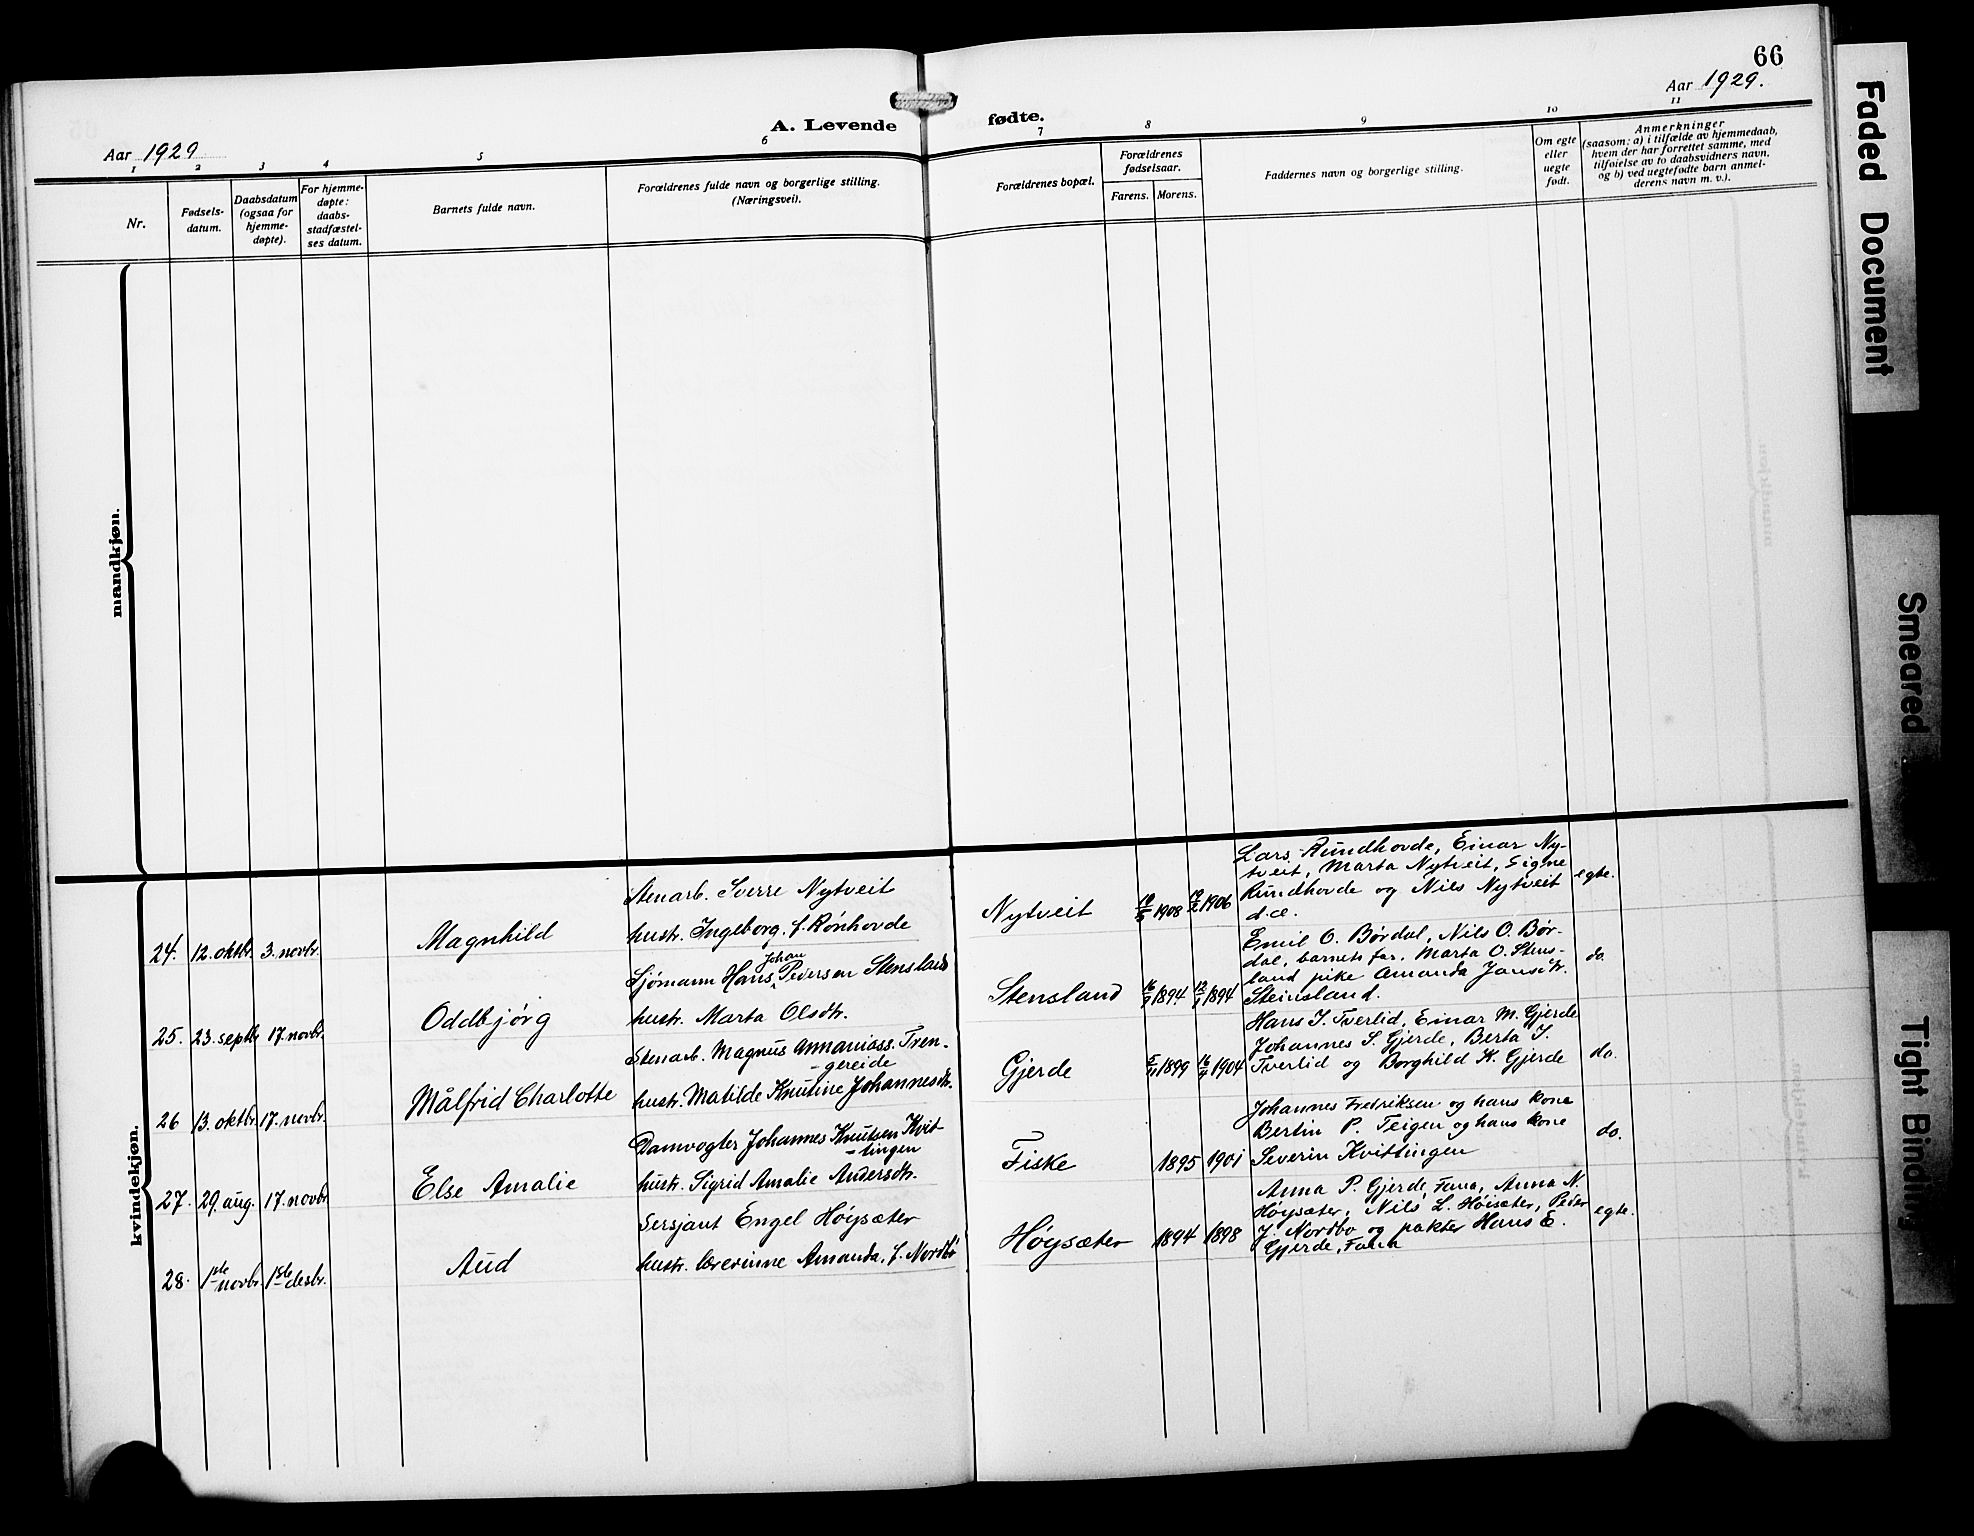 66
Aar 1929.
A. Levende fødte.
Aar 1929
1 2 3 4 5 6 7 8 9 10 11
Nr.
Fødsels-
datum.
Daabsdatum
(ogsaa for
hjemme-
døpte).
For hjemme-
døpte:
daabs-
stadfæstel-
ses datum.
Barnets fulde navn.
Forældrenes fulde navn og borgerlige stilling.
(Næringsvei).
Forældrenes bopæl.
Forældrenes
fødselsaar.
Farens. Morens.
Faddernes navn og borgerlige stilling.
Om egte
eller
uegte
født.
Anmerkninger
(saasom: a) i tilfælde av hjemmedaab,
hvem der har forrettet samme, med
tilføielse av to daabsvidners navn,
og b) ved uegtefødte barn anmel-
derens navn m. v.).
mandkjøn.
kvindekjøn.
24. 12. oktbr. 3. novbr.
Magnhild
Stenarb. Sverre Nytveit
hustr. Ingeborg, f. Rønhovde
Nytveit
1908 1906
Lars Rundhovde, Einar Ny-
tveit, Marta Nytveit, Signe
Rundhovde og Nils Nytveit
d.æ.
egte.
25. 23. septbr. 17. novbr.
Oddbjørg
Sjømann Hans Johan Pedersen Stensland
hustr. Marta Olsdtr.
Stensland
1894 1894
Emil O. Børdal, Nils O. Bør-
dal, barnets far, Marta O. Stens-
land pike Amanda Jansdtr.
Steinsland.
do.
26 13. oktbr. 17. novbr.
Målfrid Charlotte
Stenarb. Magnus Annaniass. Tren-
-gereide
hustr. Matilde Knutine Johannesdtr.
Gjerde
1899 1904
Hans J. Tverlid, Einar M. Gjerde
Johannes S. Gjerde, Berta J.
Tverlid og Borghild K. Gjerde
do.
27. 29. aug. 17. novbr.
Else Amalie
Damvogter Johannes Knutsen Kvit-
-tingen
hustr. Sigrid Amalie Andersdtr.
Fiske
1895 1901
Johannes Fredriksen og hans kone
Bertin P. Teigen og hans kone
Severin Kvittingen
do.
28. 1ste novbr. 1ste desbr.
Aud
Sersjant Engel Høysæter
hustr. lærerinne Amanda, f. Nordbø
Høysæter
1894 1898
Anna P. Gjerde, Fana, Anna N.
Høysæter, Nils L. Høisæter, Peder
J. Nordbø og pakter Hans E.
Gjerde, Fana
egte.
Faded Document
Smeared
Tight Binding